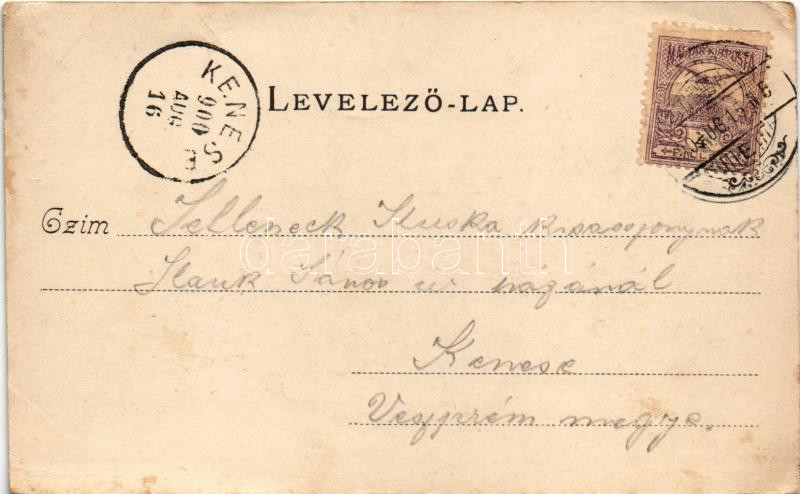 KENESE
900
AUG
16
LEVELEZŐ-LAP.
MAGYAR KIR. POSTA
Czim
kisasszonynak
János úr házánál
Kenese
Veszprém megye.
darabanth